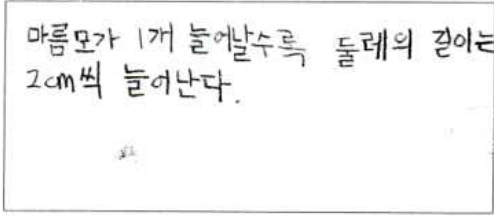 마름모가 1개 늘어날수록 둘레의 길이는
2cm씩 늘어난다.